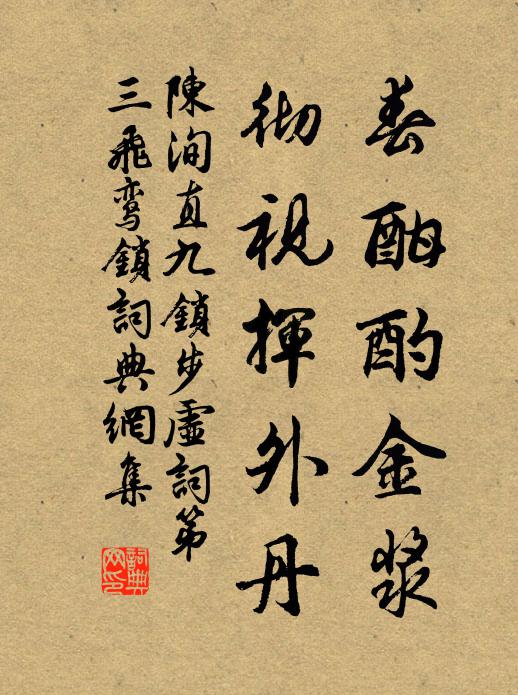 春酣酌金漿
彻視揮外丹
陳洵直九鎖步虛詞第
三飛鸾鎖詞典網集
詞典网印